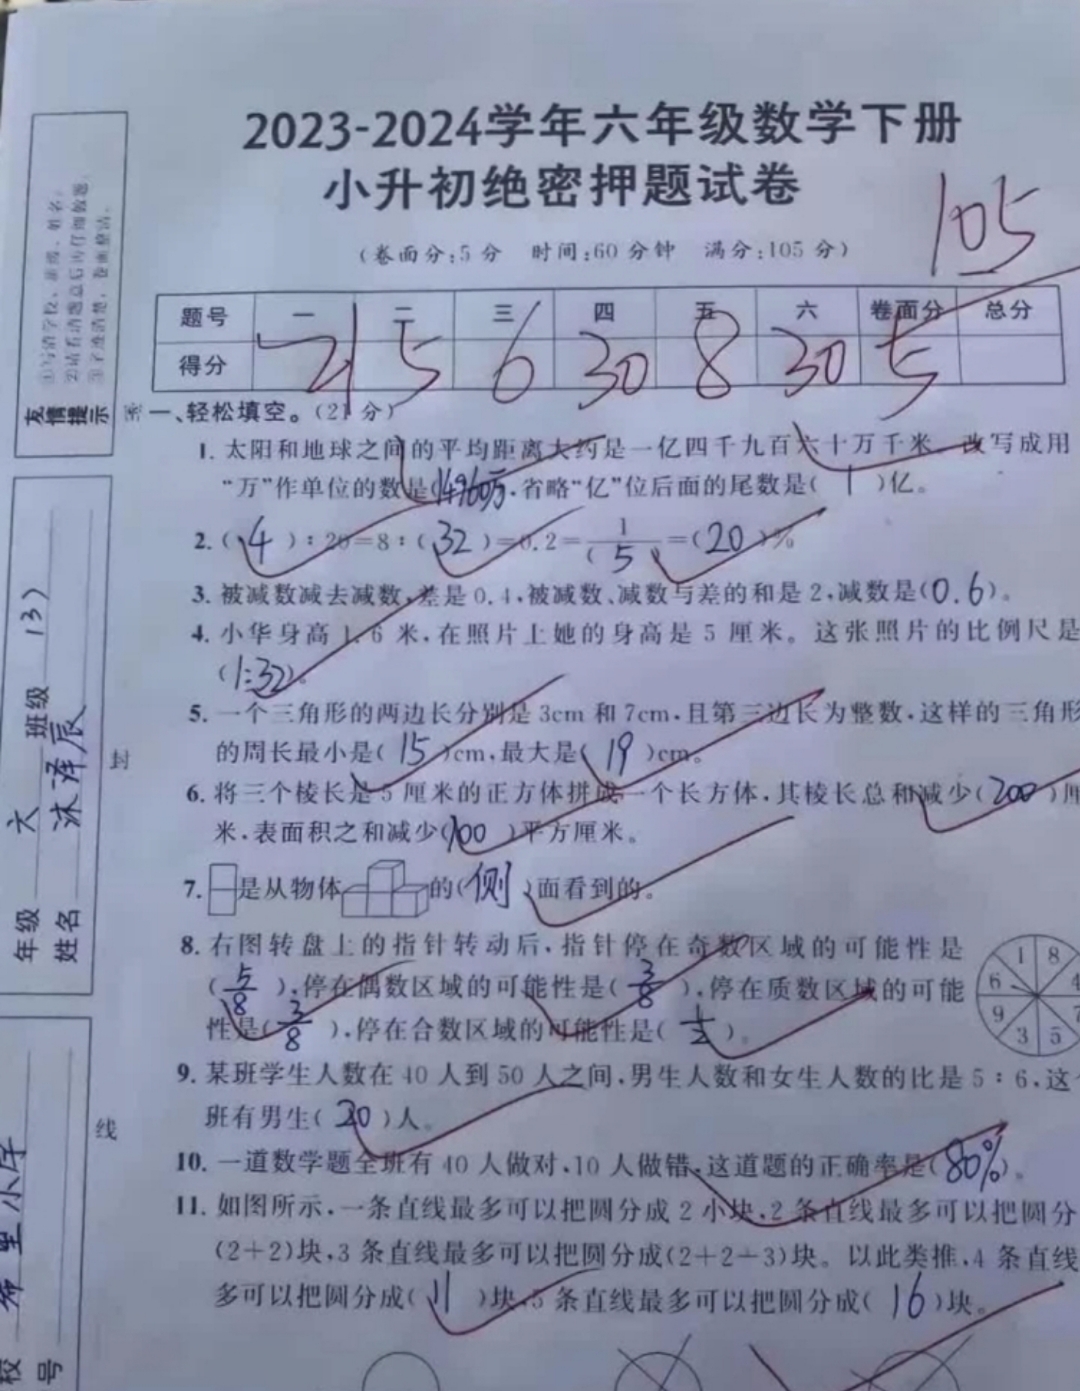 2023-2024学年六年级数学下册
小升初绝密押题试卷
105
(卷面分:5分 时间:60分钟 满分:105分)
题号 一 二 三 四 五 六 卷面分 总分
得分 21 5 6 30 8 30 5
一、轻松填空。(21分)
1. 太阳和地球之间的平均距离大约是一亿四千九百六十万千米。改写成用
“万”作单位的数是(14960万),省略“亿”位后面的尾数是( 1 )亿。
2. ( 4 ):20=8:( 32 )=0.2=1/( 5 )=( 20 )%
3. 被减数减去减数,差是0.4,被减数、减数与差的和是2,减数是(0.6)。
4. 小华身高1.6米,在照片上她的身高是5厘米。这张照片的比例尺是
(1:32)。
5. 一个三角形的两边长分别是3cm和7cm,且第三边长为整数,这样的三角形
的周长最小是( 15 )cm,最大是( 19 )cm。
6. 将三个棱长是5厘米的正方体拼成一个长方体,其棱长总和减少(200)厘
米,表面积之和减少(100)平方厘米。
7. 是从物体 的(侧)面看到的。
8. 右图转盘上的指针转动后,指针停在奇数区域的可能性是
( 5/8 ),停在偶数区域的可能性是( 3/8 ),停在质数区域的可能
性是( 3/8 ),停在合数区域的可能性是( 1/2 )。
1 8
6 4
9 7
3 5
9. 某班学生人数在40人到50人之间,男生人数和女生人数的比是5:6,这个
班有男生( 20 )人。
10. 一道数学题全班有40人做对,10人做错,这道题的正确率是(80%)。
11. 如图所示,一条直线最多可以把圆分成2小块,2条直线最多可以把圆分
(2+2)块,3条直线最多可以把圆分成(2+2+3)块。以此类推,4条直线
多可以把圆分成( 11 )块,5条直线最多可以把圆分成( 16 )块。
友情提示
密
封
线
年级 六 班级 (3)
姓名 沐泽辰
校 希里小学
号